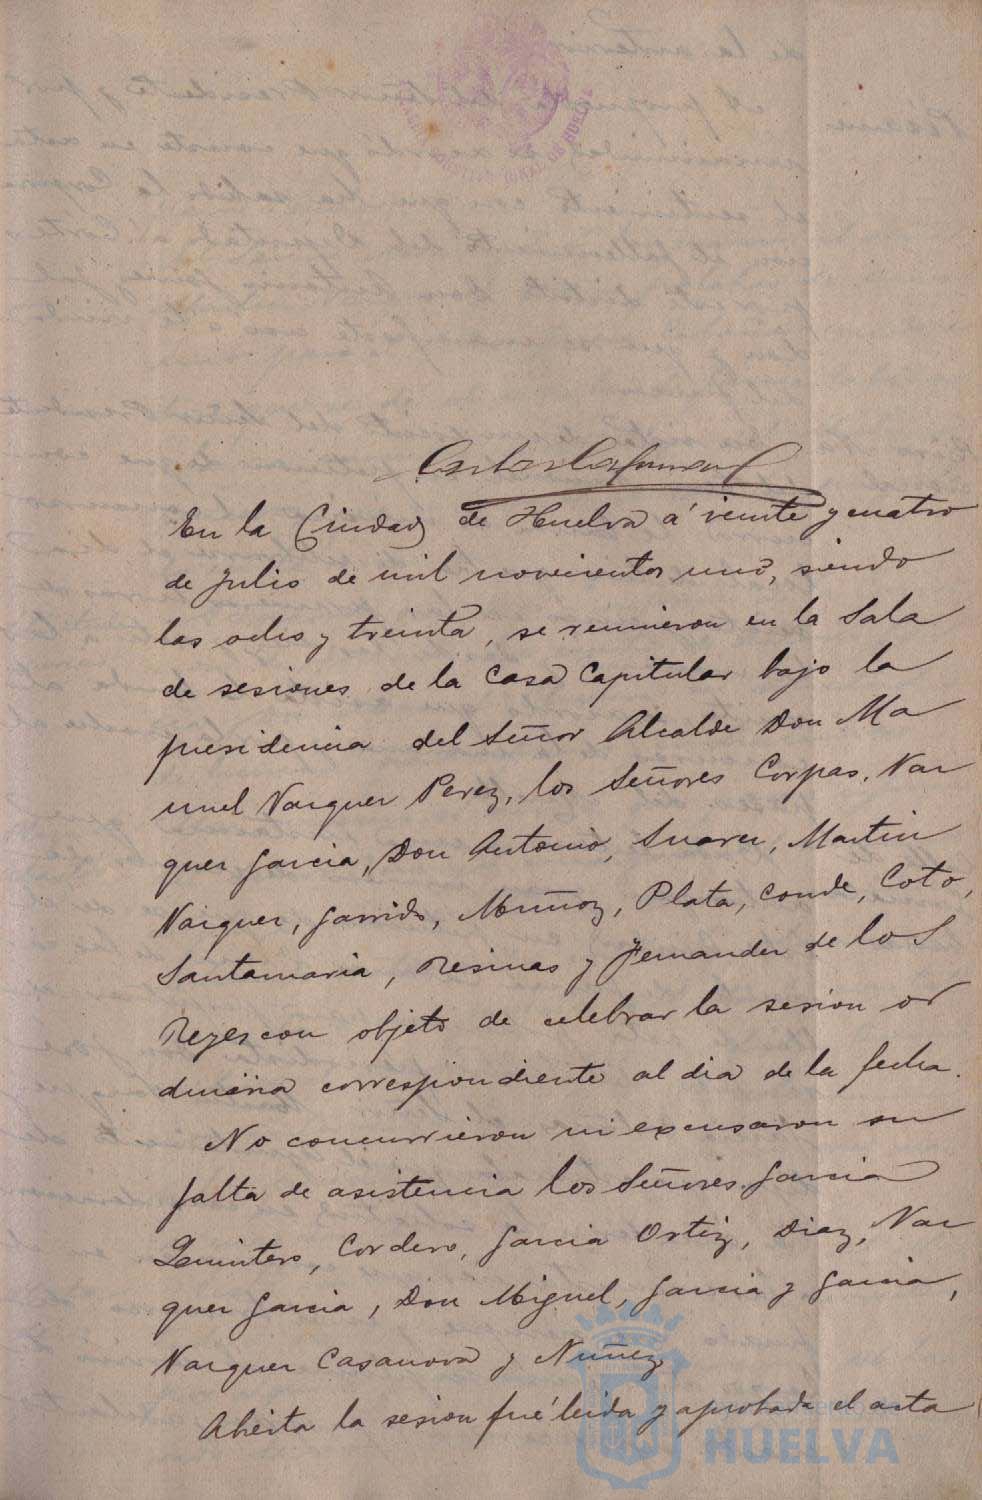 En la Ciudad de Huelva á veinte y cuatro
de Julio de mil novecientos uno, siendo
las ocho y treinta, se reunieron en la Sala
de sesiones de la Casa Capitular bajo la
presidencia del Señor Alcalde Don Ma
nuel Vazquez Perez, los Señores Corpas, Vaz
quez Garcia, Don Antonio, Suarez, Martin
Vazquez, Garrido, Muñoz, Plata, Conde, Coto,
Santamaria, Resinas y Fernandez de los
Reyes con objeto de celebrar la sesion or
dinaria correspondiente al dia de la fecha.
No concurrieron ni excusaron su
falta de asistencia los Señores Garcia
Quintero, Cordero, Garcia Ortiz, Diaz, Vaz
quez Garcia, Don Miguel, Garcia y Garcia,
Vazquez Casanova y Nuñez
Abierta la sesion fué leida y aprobada el acta
HUELVA